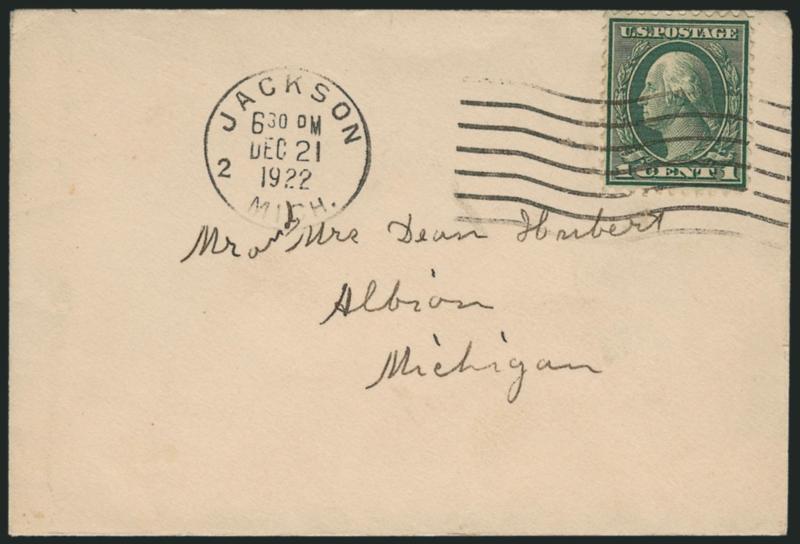 U.S. POSTAGE
1 CENT 1
JACKSON
630 PM
DEC 21
2
1922
MICH.
Mr and Mrs Dean Hubert
Albion
Michigan